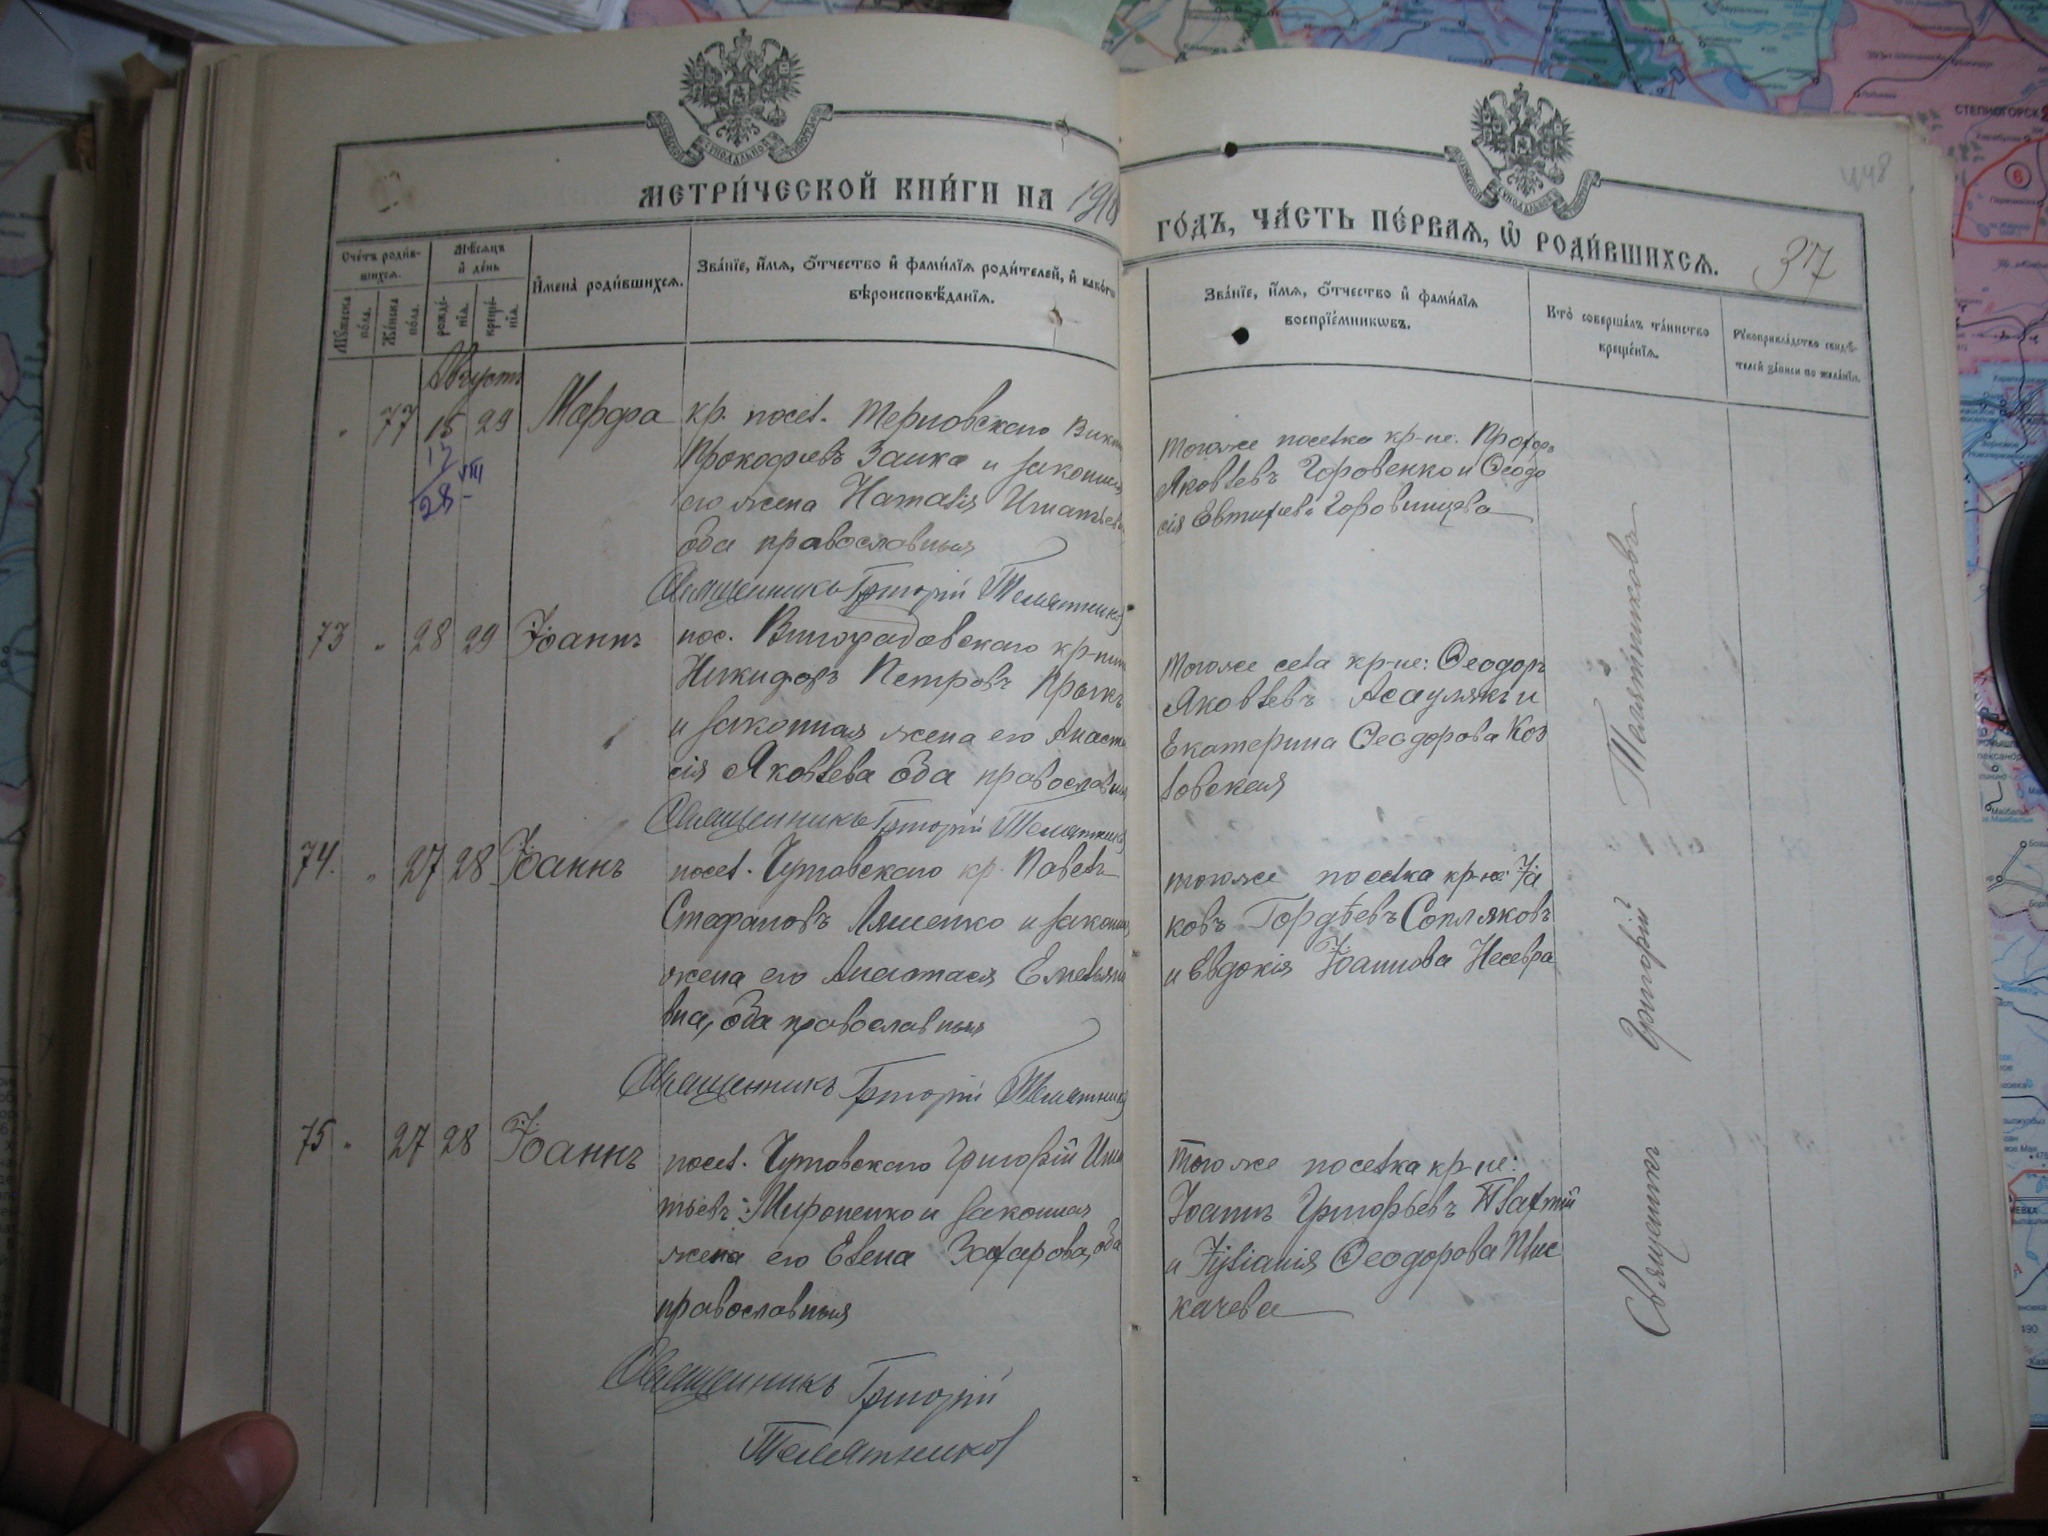 МЕТРИ́ЧЕСКОЙ КНИ́ГИ НА 1918
ГО́ДЪ, ЧА́СТЬ ПЕ́РВАЯ, Ѡ҆ РОДИ́ВШИХСЯ.
37
448
Сче́тъ роди́в-
шихся.
Мѣ́сяцъ
и҆ де́нь
Мꙋ́жеска
по́ла.
Же́нска
по́ла.
рожде́-
нїя.
креще́-
нїя.
И҆мена̀ роди́вшихся.
Зва́нїе, и҆́мя, ѻ҆́тчество и҆ фами́лїя роди́телей, и҆ како́гѡ
вѣроисповѣ́данїя.
Зва́нїе, и҆́мя, ѻ҆́тчество и҆ фами́лїя
воспрїе́мникѡвъ.
Кто̀ соверша́лъ та́инство
креще́нїя.
Рꙋкоприкла́дство свидѣ́-
телей за́писи по жела́нїю.
Августъ
77 15 29 Марфа
17
28 VIII
кр. посел. Терновскаго
Прокофьевъ Заика и законная
его жена Наталія Игнатьева
оба православныя
Священникъ Григорій Телятников
Тогоже поселка кр-не: Прохоръ
Яковлевъ Горовенко и Ѳеодо
сія Евтихіева
73 " 28 29 Іоаннъ
пос. Виноградовскаго кр-нинъ
Никифоръ Петровъ
и законная жена его Анаста
сія Яковлева оба православныя
Священникъ Григорій Телятников
Тогоже села кр-не: Ѳеодоръ
Яковлевъ Асаулякъ и
Екатерина Ѳеодорова Коз
ловская
74. " 27 28 Іоаннъ
посел. Чутовскаго кр. Павелъ
Стефановъ Ляшенко и законная
жена его Анастасія Емельяно
вна, оба православныя
Священникъ Григорій Телятников
тогоже поселка кр-не: Іа
ковъ Гордѣевъ Сопляковъ
и Евдокія Іоаннова
75 " 27 28 Іоаннъ
посел. Чутовскаго Григорій Игна
тьевъ Мироненко и законная
жена его Елена Захарова, оба
православныя
Священникъ Григорій
Телятников
Тогоже поселка кр-не:
Іоаннъ Григорьевъ
и Іуліанія Ѳеодорова Плис
качева
Священникъ Григорій Телятниковъ
СТЕПНОГОРСК